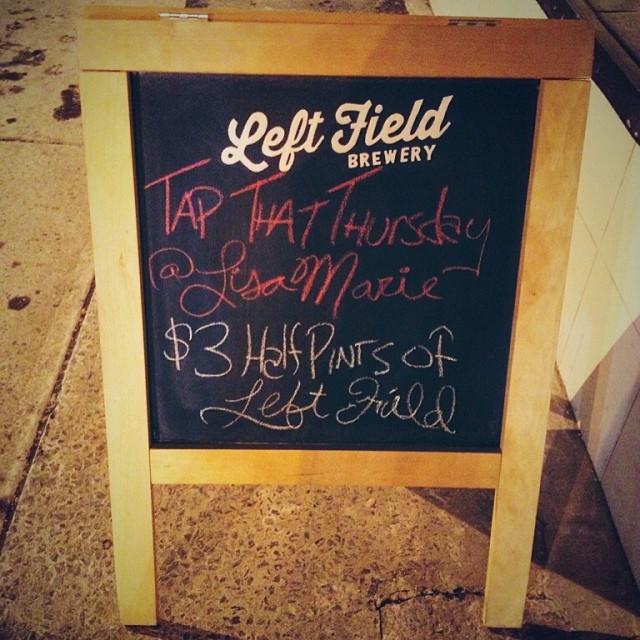 Left Field
BREWERY
TAP THAT THURSday
@LisaMarie
$3 Half PINTS OF
Left Field